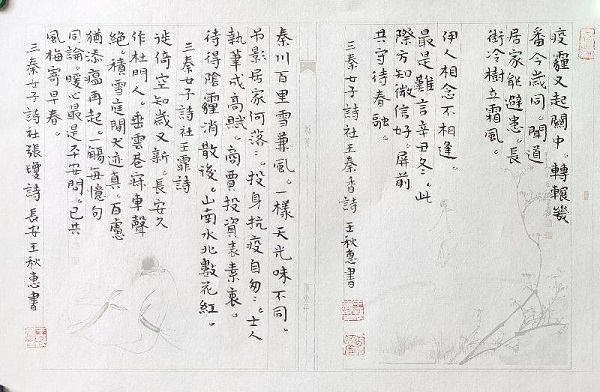 疫霾又起關中。轉輾幾
番今歲同。聞道
居家能避患。長
街冷樹立霜風。
伊人相念不相逢。
最是難言辛丑冬。此
際方知微信好。屏前
共守待春融。
三秦女子詩社王秦香詩 王秋惠書
秦川百里雪兼風。一樣天光味不同。
弔影居家何落:。投身抗疫自匆:。士人
執筆成高賦。商賈投資表素衷。
待得陰霾消散後。山南水北數花紅。
三秦女子詩社王霏詩
徙倚空知歲又新。長安久
作杜門人。垂雲巷寂車聲
絕。積雪庭閑犬迹真。百慮
猶添瘟再起。一觴每憶句
同論。暖心最是平安問。已共
風梅寄早春。
三秦女子詩社張瓊詩 長安王秋惠書